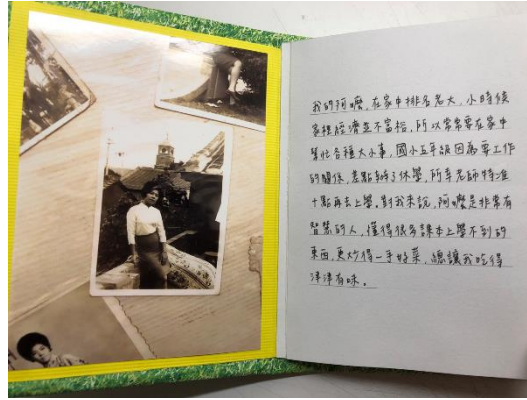 我的阿嬤，在家中排名老大，小時候
家裡經濟並不富裕，所以常常要在家中
幫忙各種大小事，國小五年級因為要工作
的關係，差點辦了休學，所幸老師特准
十點再去上學，對我來說，阿嬤是非常有
智慧的人，懂得很多課本上學不到的
東西，更炒得一手好菜，總讓我吃得
津津有味。